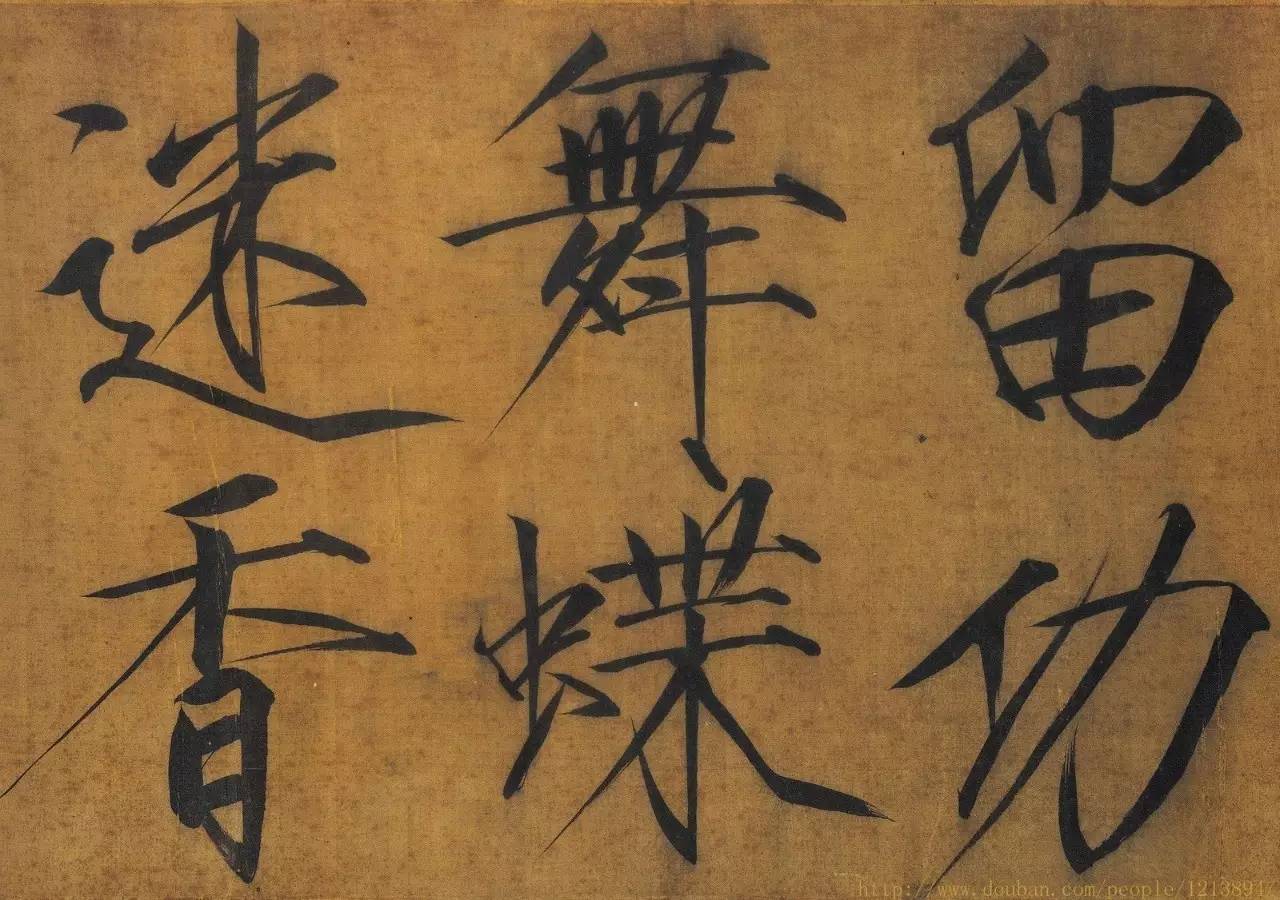 留功
舞蝶
迷香
http://www.douban.com/people/1213894